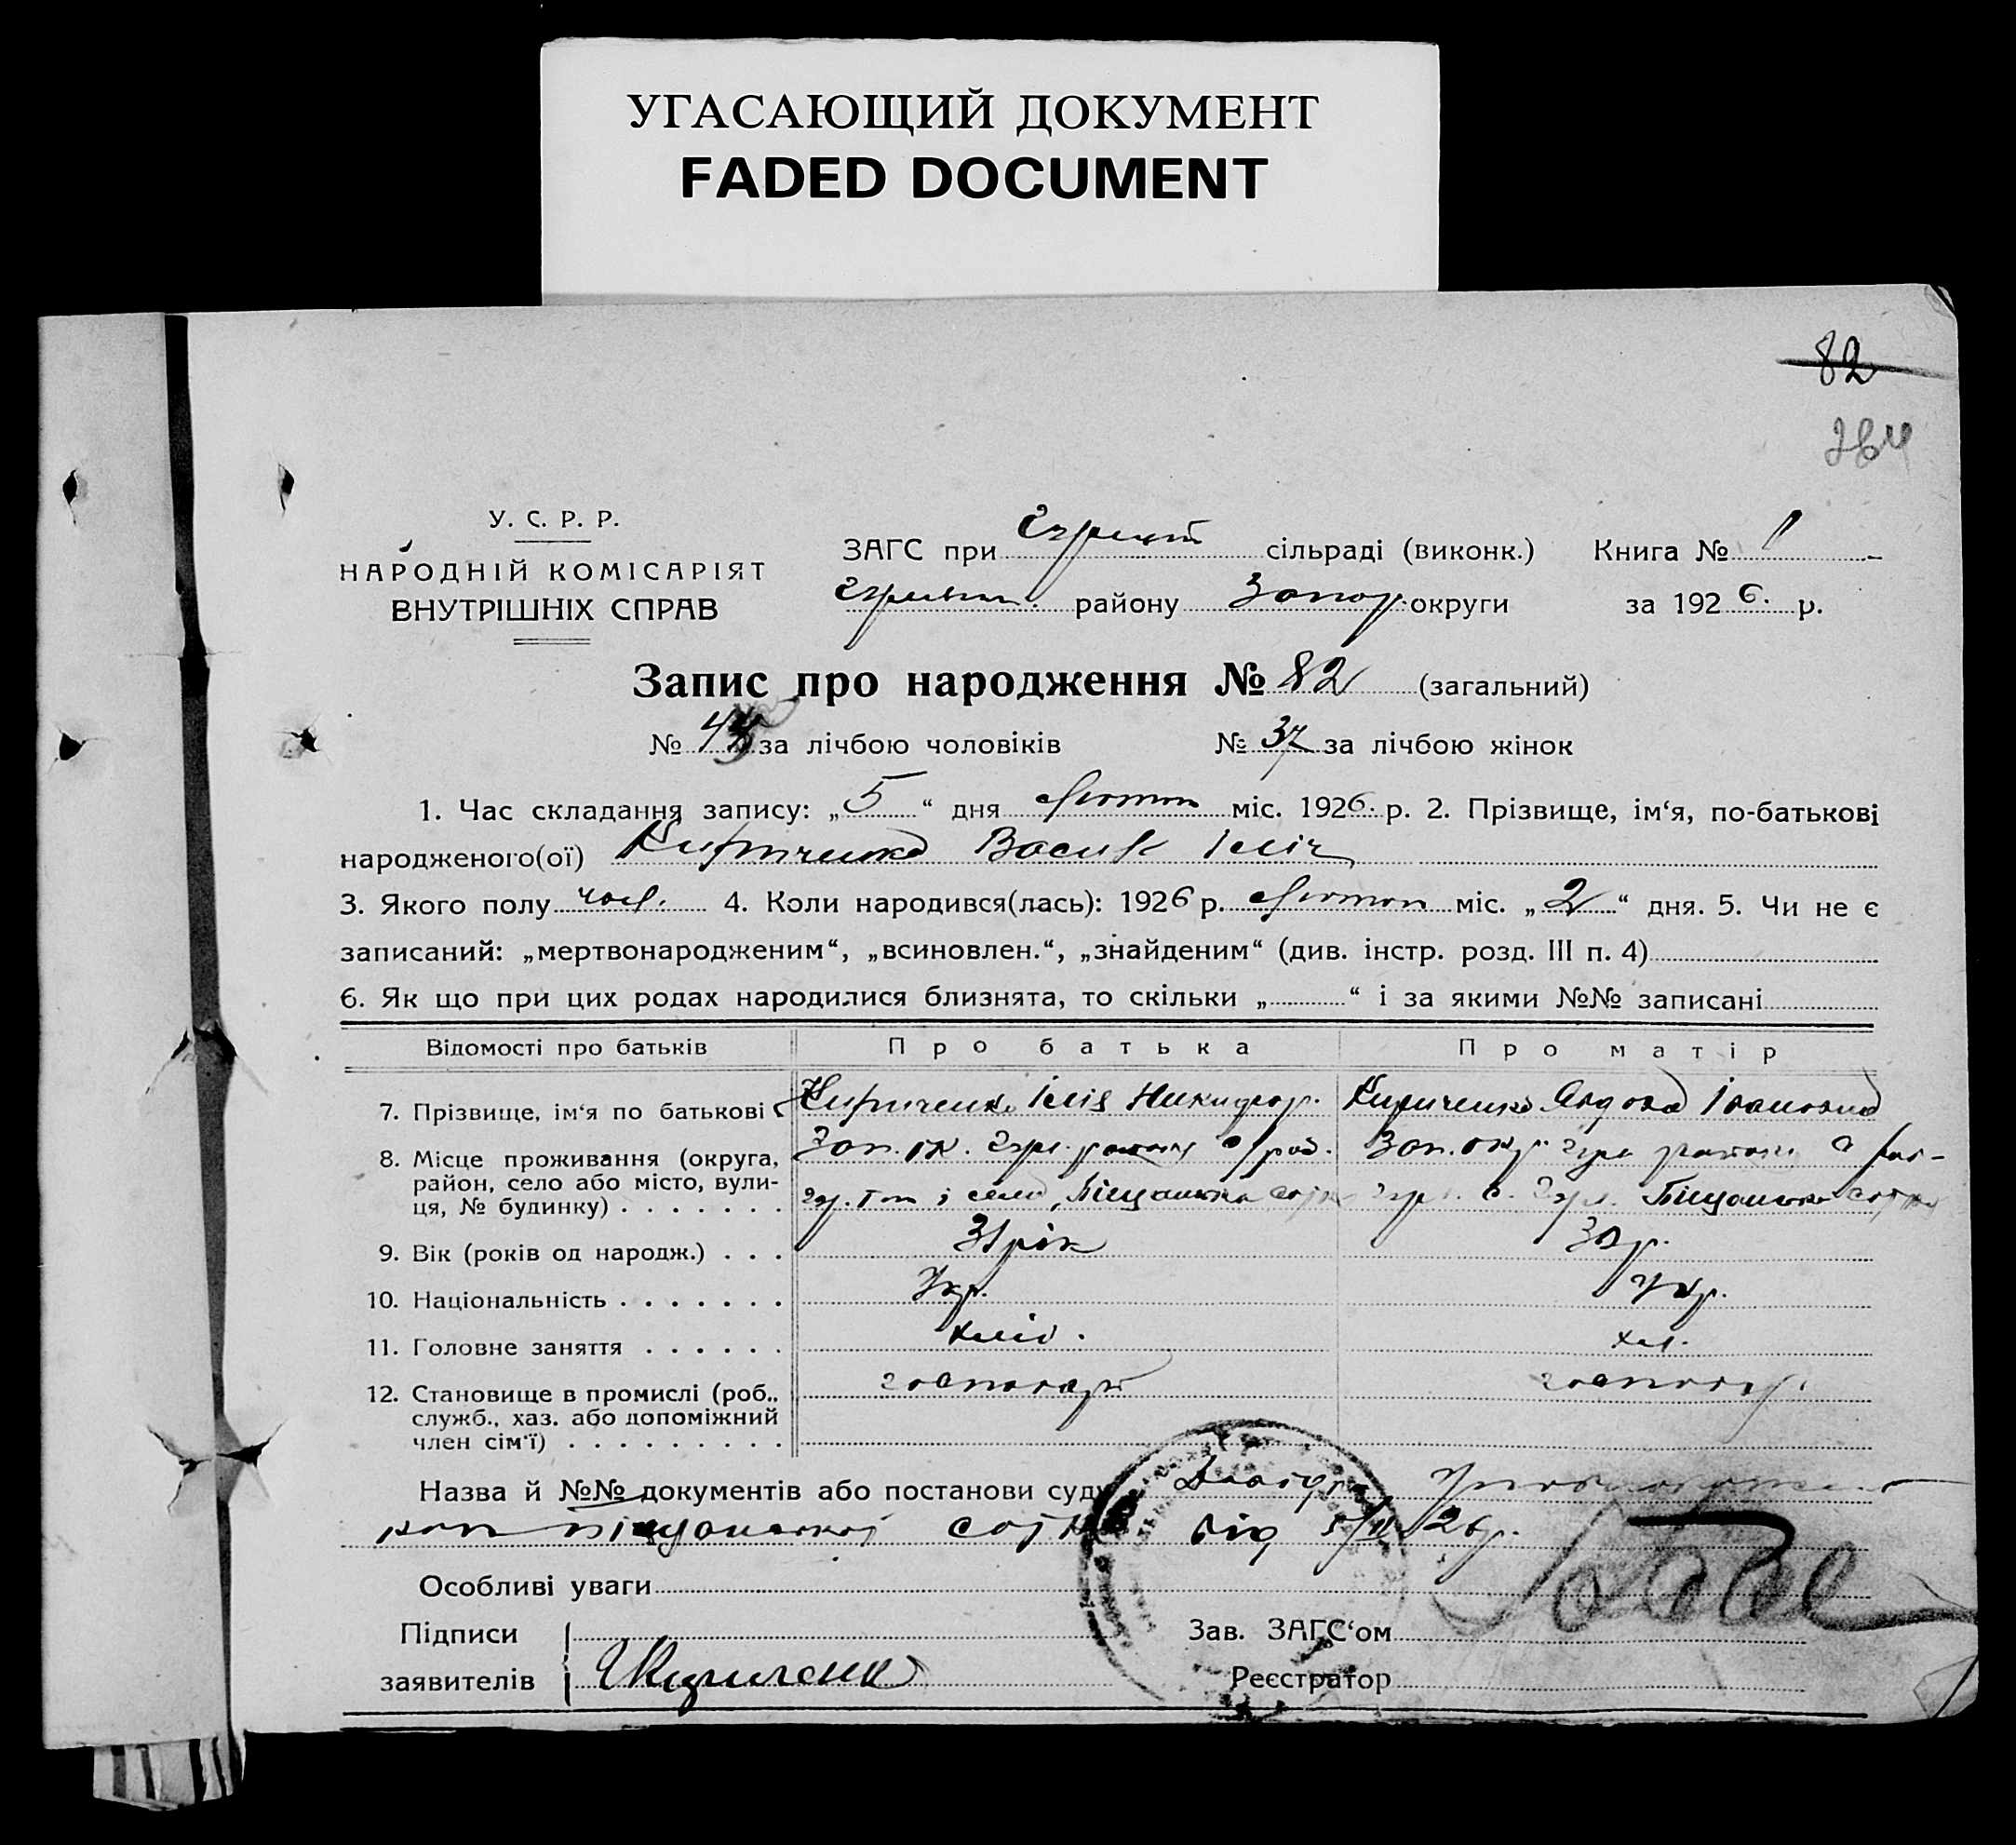 УГАСАЮЩИЙ ДОКУМЕНТ
FADED DOCUMENT
82
У. С. Р. Р.
НАРОДНІЙ КОМІСАРІЯТ
ВНУТРІШНІХ СПРАВ
ЗАГС при сільраді (виконк.)
району Запор. округи
Книга № 1
за 1926. р.
Запис про народження № 82 (загальний)
№ за лічбою чоловіків № 37 за лічбою жінок
1. Час складання запису: „5“ дня лютого міс. 1926. р. 2. Прізвище, ім‘я, по-батькові
народженого(ої) Кириченко Василь Ілліч
3. Якого полу чол. 4. Коли народився(лась): 1926 р. лютого міс. „2“ дня. 5. Чи не є
записаний: „мертвонародженим“, „всиновлен.“, „знайденим“ (див. інстр. розд. III п. 4)
6. Як що при цих родах народилися близнята, то скільки „ “ і за якими №№ записані
Відомості про батьків Про батька Про матір
7. Прізвище, ім‘я по батькові Кириченко Ілія Никифор. Кириченко Івановна
8. Місце проживання (округа, Зап. ок. району Зап. окр. району
район, село або місто, вули- Піщанська Піщанська
ця, № будинку)
9. Вік (років од народж.) 31 рік 30 р.
10. Національність Укр. Укр.
11. Головне заняття хліб. хл.
12. Становище в промислі (роб., господар господар.
служб., хаз. або допоміжний
член сім‘ї)
Назва й №№ документів або постанови суду
Піщанської від 5/II 26 р.
Особливі уваги
Підписи
заявителів Кириченко
Зав. ЗАГС‘ом
Реєстратор